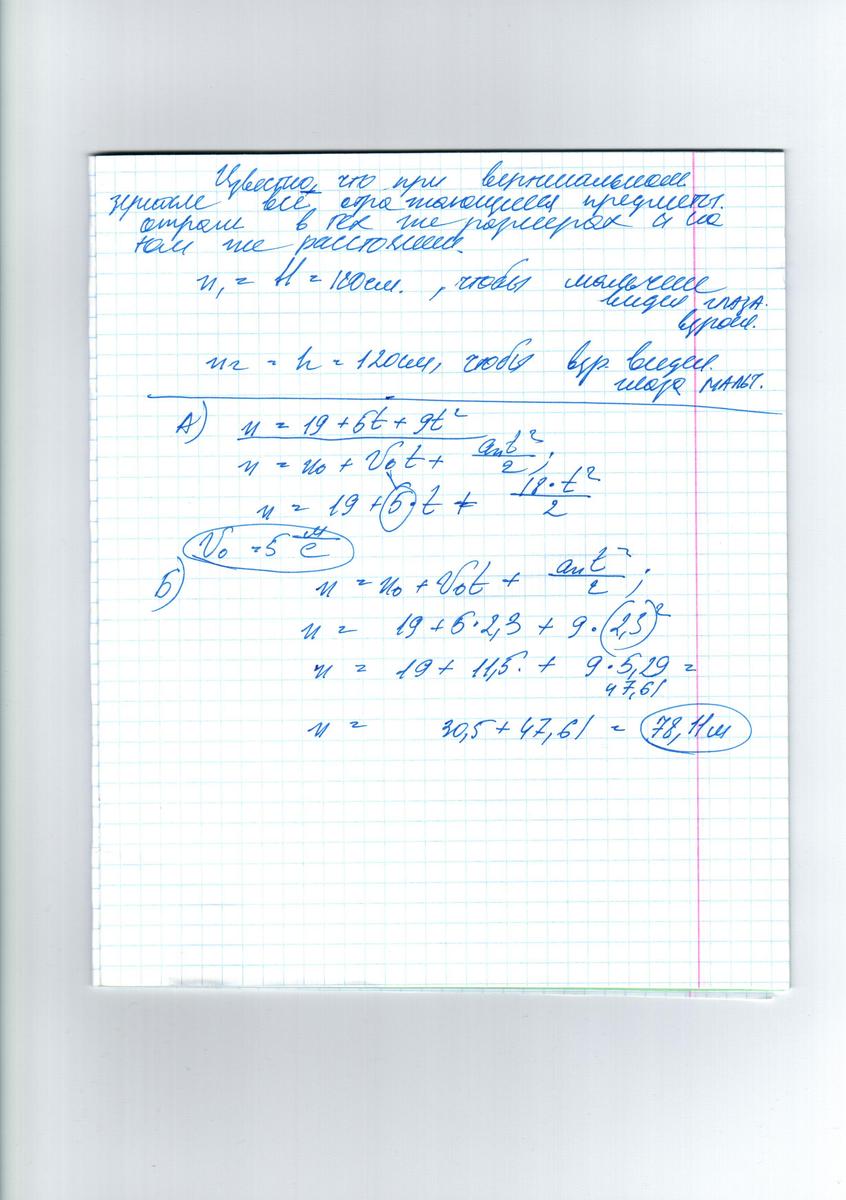 Известно, что при вертикальном
зеркале все отражающиеся предметы.
отраж в тех же размерах и на
том же расстоянии.
x₁ = H = 180см. , чтобы мальчик
видел глаза.
взросл.
x₂ = h = 120см, чтобы взр. видел.
глаза мальч.
А) x = 19 + 5t + 9t²
x = x₀ + V₀t + aₓt²/2 ;
x = 19 + 5·t + 18·t²/2
V₀ = 5 м/с
Б) x = x₀ + V₀t + aₓt²/2 ;
x = 19 + 5·2,3 + 9·(2,3)²
x = 19 + 11,5. + 9·5,29 =
47,61
x = 30,5 + 47,61 = 78,11м